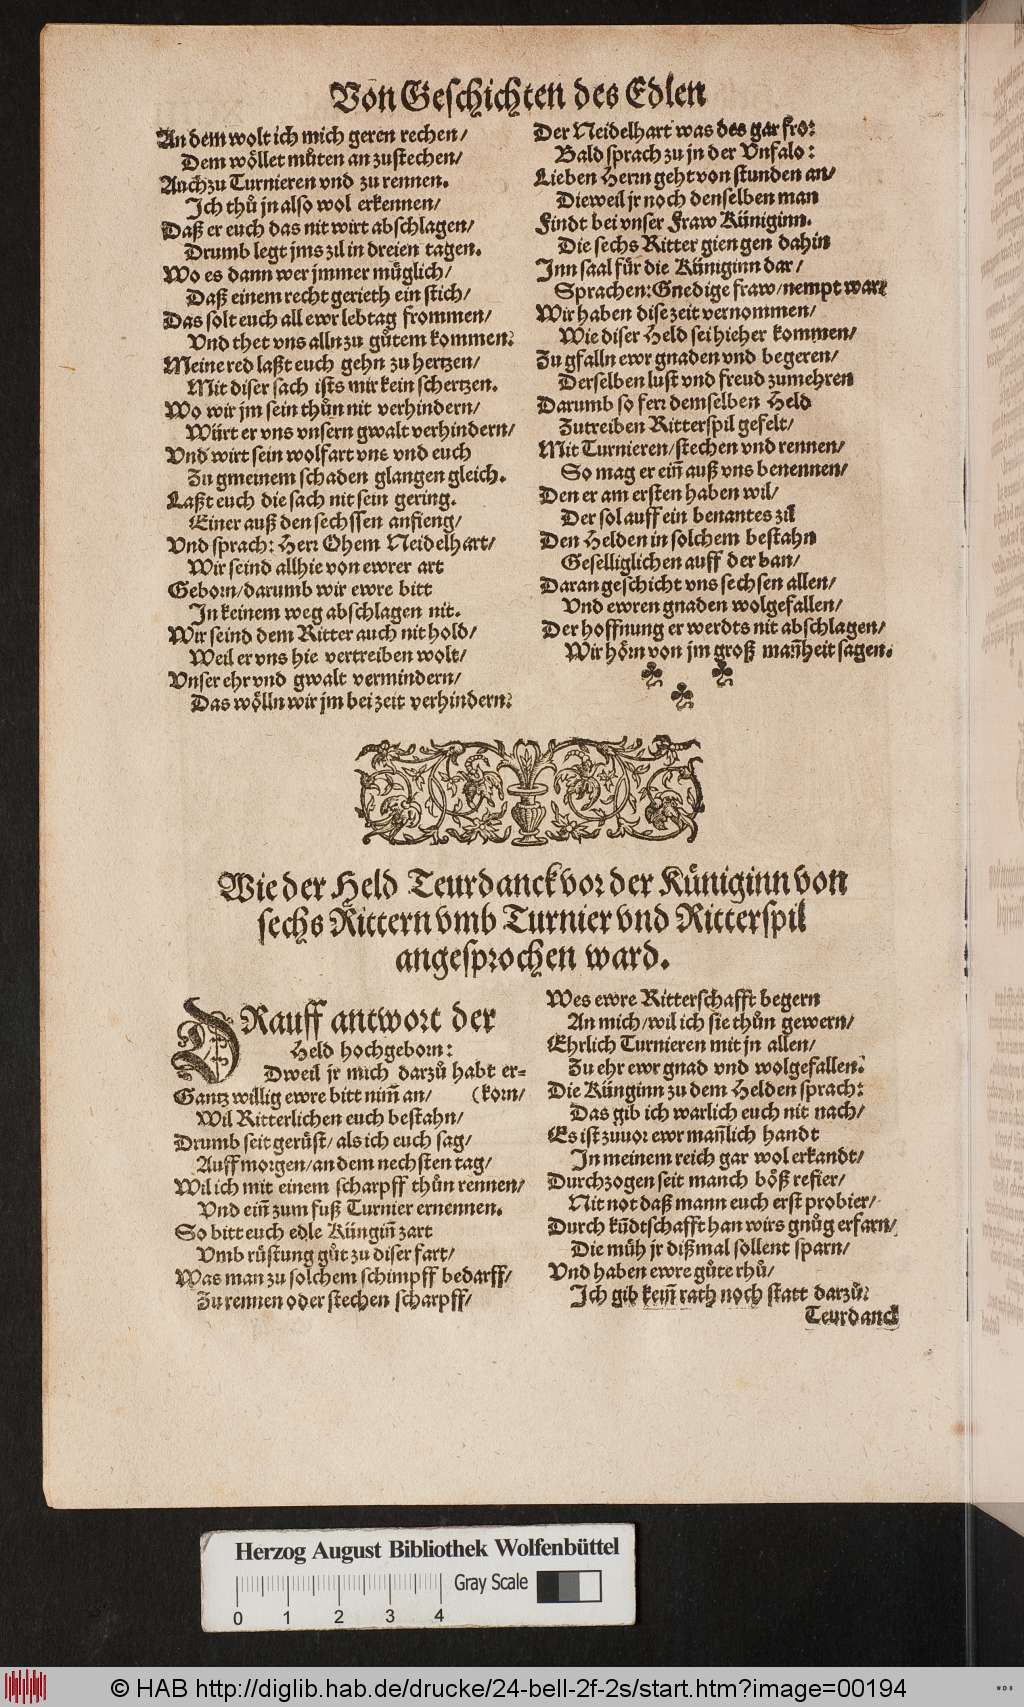 Von Geschichten des Edlen
An dem wolt ich mich geren rechen/
Dem wöllet müten anzustechen/
Auch zu Turnieren vnd zu rennen.
Ich thů jn also wol erkennen/
Daß er euch das nit wirt abschlagen/
Drumb legt jms zil in dreien tagen.
Wo es dann wer jmmer müglich/
Daß einem recht gerieth ein stich/
Das solt euch all ewr lebtag frommen/
Vnd thet vns alln zu gůtem kommen:
Meine red laßt euch gehn zu hertzen/
Mit diser sach ists mir kein schertzen.
Wo wir jm sein thůn nit verhindern/
Würt er vns vnsern gwalt verhindern/
Vnd wirt sein wolfart vns vnd euch
Zu gmeinem schaden glangen gleich.
Laßt euch die sach nit sein gering.
Einer auß den sechssen anfieng/
Vnd sprach: Herr Ohem Neidelhart/
Wir seind allhie von ewrer art
Geborn/darumb wir ewre bitt
In keinem weg abschlagen nit.
Wir seind dem Ritter auch nit hold/
Weil er vns hie vertreiben wolt/
Vnser ehr vnd gwalt vermindern/
Das wölln wir jm bei zeit verhindern:
Der Neidelhart was des gar fro:
Bald sprach zu jn der Vnfalo:
Lieben Herrn geht von stunden an/
Dieweil jr noch denselben man
Findt bei vnser Fraw Küniginn.
Die sechs Ritter giengen dahin
Inn saal für die Küniginn dar/
Sprachen: Gnedige fraw/nempt war
Wir haben dise zeit vernommen/
Wie diser Held sei hieher kommen/
Zu gfalln ewr gnaden vnd begeren/
Derselben lust vnd freud zumehren
Darumb so ferr demselben Held
Zutreiben Ritterspil gefelt/
Mit Turnieren/stechen vnd rennen/
So mag er eiñ auß vns benennen/
Den er am ersten haben wil/
Der sol auff ein benantes zil
Den Helden in solchem bestahn
Geselliglichen auff der ban/
Daran geschicht vns sechsen allen/
Vnd ewren gnaden wolgefallen/
Der hoffnung er werdts nit abschlagen/
Wir hörn von jm groß mañheit sagen.
Wie der Held Teurdanck vor der Küniginn von
sechs Rittern vmb Turnier vnd Ritterspil
angesprochen ward.
DRauff antwort der
Held hochgeborn:
Dweil jr mich darzů habt er-
Gantz willig ewre bitt nim̃ an/ (korn/
Wil Ritterlichen euch bestahn/
Drumb seit gerüst/ als ich euch sag/
Auff morgen/an dem nechsten tag/
Wil ich mit einem scharpff thůn rennen/
Vnd eiñ zum fuß Turnier ernennen.
So bitt euch edle Küngiñ zart
Vmb rüstung gůt zu diser fart/
Was man zu solchem schimpff bedarff/
Zu rennen oder stechen scharpff/
Wes ewre Ritterschafft begern
An mich/wil ich sie thůn gewern/
Ehrlich Turnieren mit jn allen/
Zu ehr ewr gnad vnd wolgefallen:
Die Künginn zu dem Helden sprach:
Das gib ich warlich euch nit nach/
Es ist zuuor ewr mañlich handt
In meinem reich gar wol erkandt/
Durchzogen seit manch böß refier/
Nit not daß mann euch erst probier/
Durch kũdtschafft han wirs gnůg erfarn/
Die müh jr dißmal sollent sparn/
Vnd haben ewre gůte rhů/
Ich gib keiñ rath noch statt darzů:
Teurdanck
Herzog August Bibliothek Wolfenbüttel
Gray Scale
0 1 2 3 4
© HAB http://diglib.hab.de/drucke/24-bell-2f-2s/start.htm?image=00194